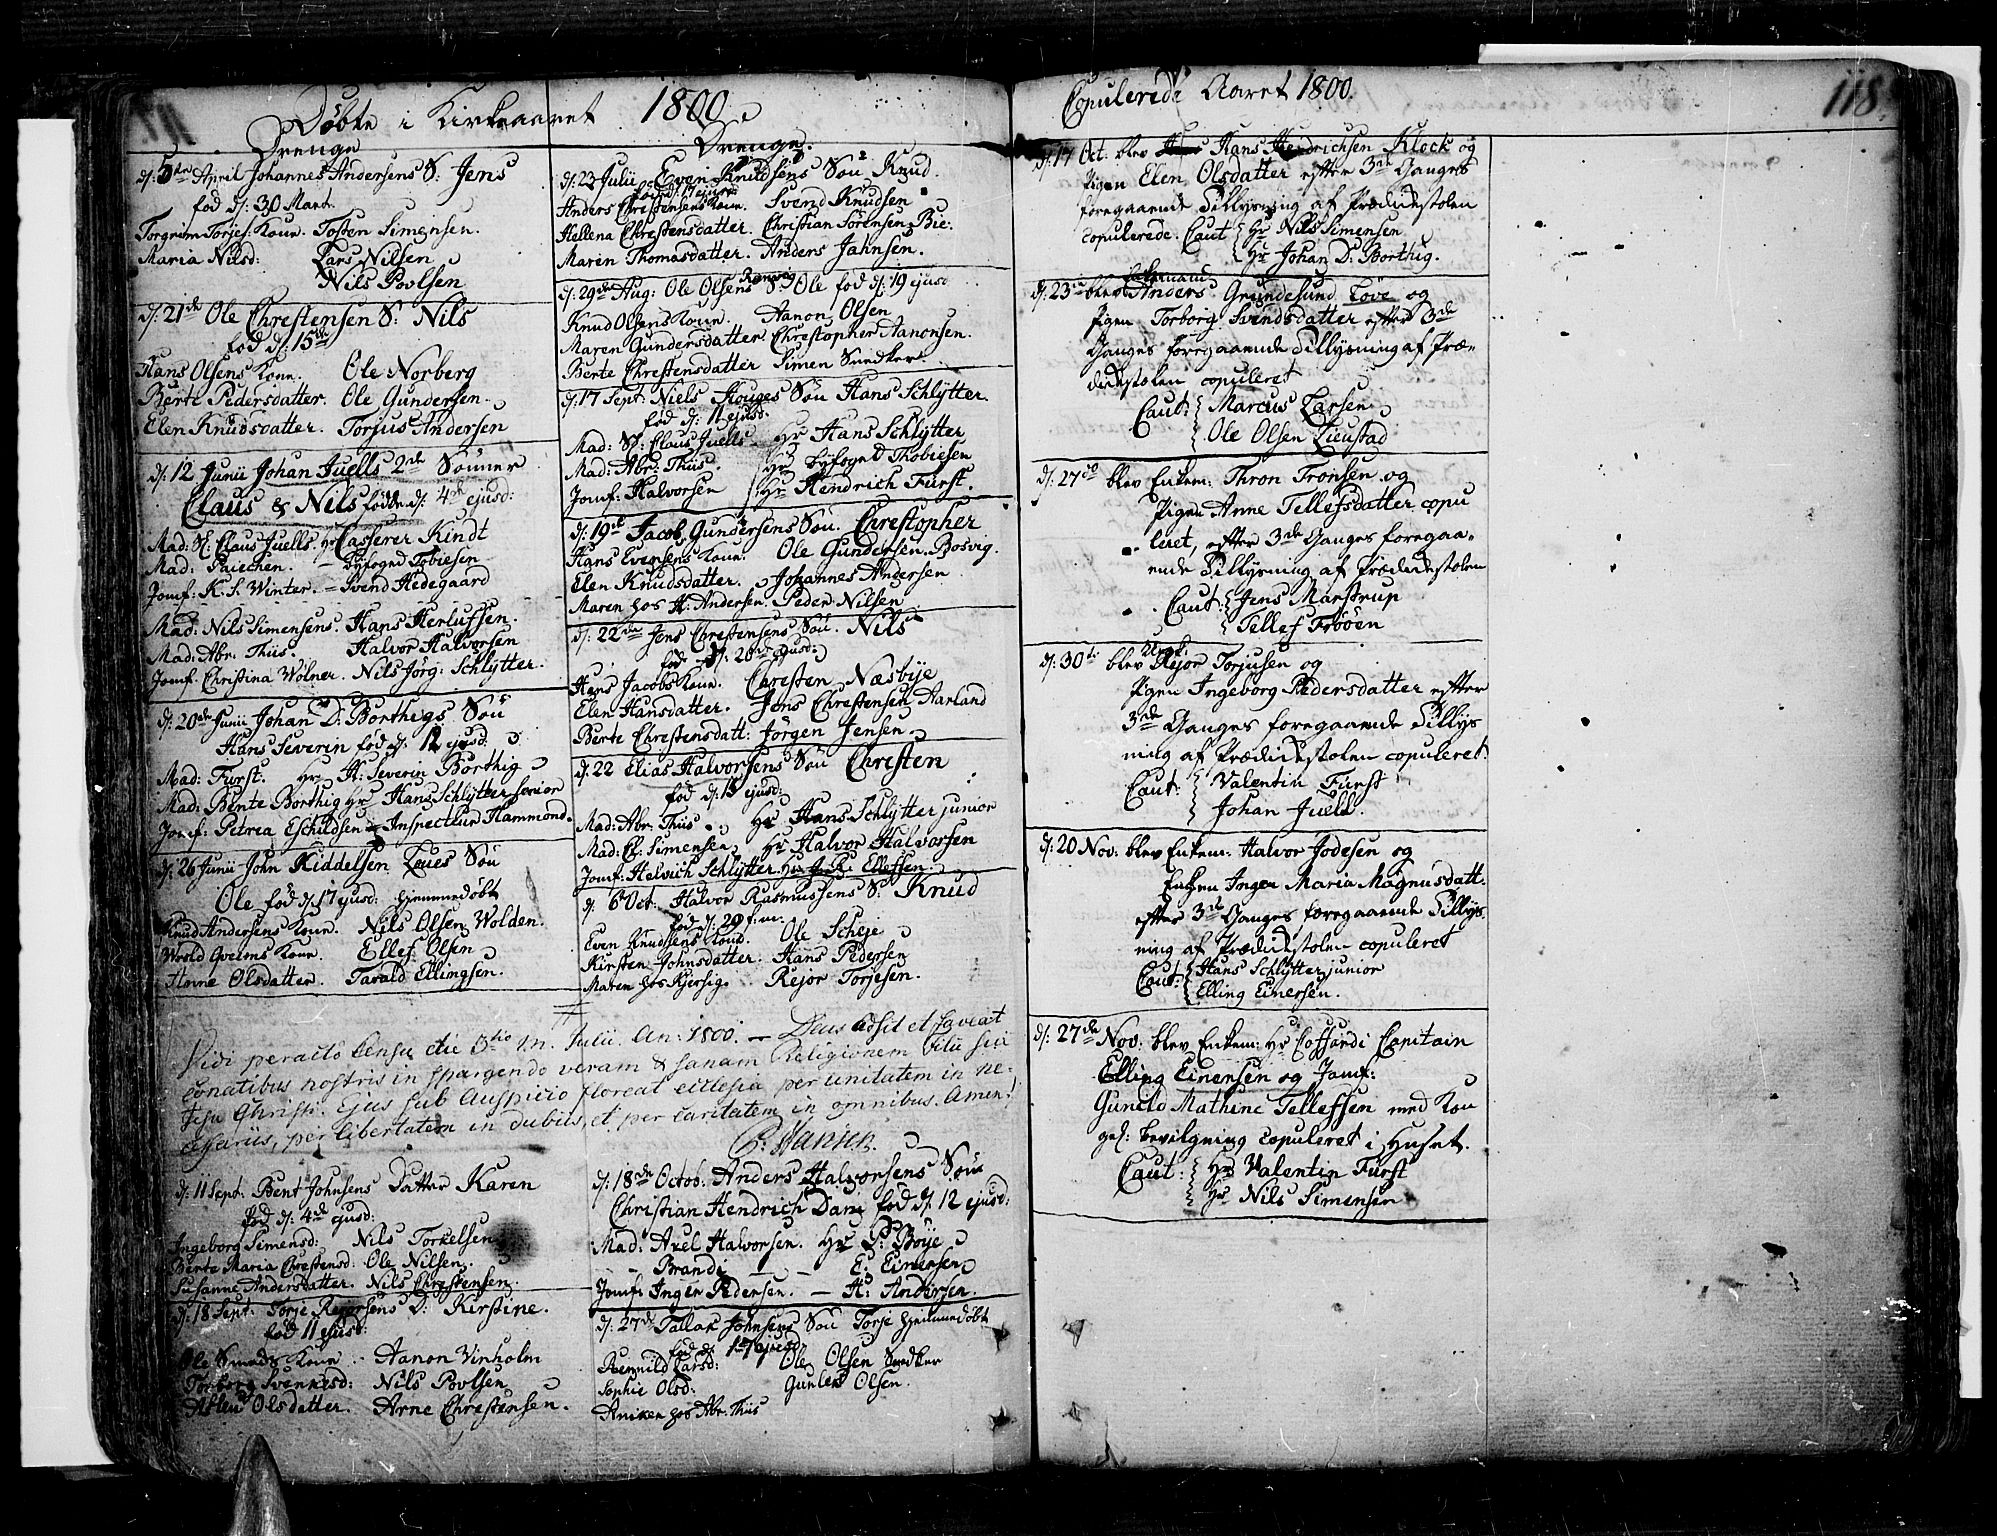 Döbte i Kirkeaaret 1800
Drenge
d: 5te April Johannes Andersens S: Jens
fød d: 30 Mart.
Torgrim Torjes: Kone. Tosten Simonsen.
Maria Nilsd: Lars Nilsen
Nils Povlsen
d: 21de Ole Chrestensen S: Nils
fød d: 15de
Hans Olsens Kone. Ole Norberg
Berte Pedersdatter. Ole Gundersen.
Elen Knudsdatter. Torjus Andersen
d: 12 Junii Johan Juells 2de Sönner
Claus & Nils födde d: 4de ejusd:
Mad: Sl: Claus Juells. Hr Casserer Kindt
Mad: Byfoged Tobiesen
Jomf: K. S. Winter. – Svend Hedegaard
Mad: Nils Simensens. Hans Herlufsen.
Mad: Abr: Thiis. Halvor Halvorsen
Jomf. Christina Wölner. Nils Jörg: Schlytter.
d: 20de Junii Johan D: Borthigs Sön
Hans Severin fød d: 12 ejusd:
Mad: Furst. Hr H: Severin Borthig
Mad: Bente Borthig Hr Hans Schlytter senior
Jomf: Petrea Eschildsen – Inspecteur Hammond.
d: 26 Junii John Kiddelsen Søn
Ole fød d: 17 ejusd: hjemmedöbt
Knud Andersens Kone. Nils Olsen Wolden.
Kone. Ellef Olsen
Anne Olsdatter. Tarald Ellingsen.
Drenge.
d: 23 Julii Even Knudsens Sön Knud.
fød d: 17 ejusd
Anders Chrestensens Kone. Svend Knudsen
Hellena Chrestensdatter. Christian Sörensen Bie:
Maren Thomasdatter. Anders Jahnsen.
Ranvig
d: 29de Aug: Ole Olsens S: Ole fød d: 19 ejusd
Knud Olsens Kone. Aanon Olsen
Maren Gundersdatter Chrestopher Aanonsen.
Berte Chrestensdatter Simen Snedker
d: 17 Sept: Niels Houges Sön Hans Schlytter.
fød d: 11 ejusd:
Mad: Sl: Claus Juells Hr Hans Schlytter
Mad: Abr: Thiis. Hr Byfoged Thobiesen
Jomf: Halvorsen Hr Hendrich Furst.
d: 19de Jacob Gundersens Sön. Chrestopher
Hans Evensens Kone. Ole Gundersen Bosvig.
Elen Knudsdatter. Johannes Andersen
Maren hos H: Andersen. Peder Nilsen
d: 22de Jens Chrestensens Sön. Nils
fød d: 20de ejusd:
Hans Jacobs Kone. Chresten Næsbye
Elen Hansdatter. Jens Chrestensen Aarland
Berte Chrestensdatt: Jörgen Jensen
d: 22 Elias Halvorsens Sön Christen
fød d: 15 ejusd:
Mad: Abr: Thiis Hr Hans Schlytter junior
Mad: Simensen Hr Halvor Halvorsen
Jomf: Helvich Schlytter. Hr Ellefsen.
d: 6 Oct: Halvor Rasmussens S: Knud
fød d: 29 f: m:
Even Knudsens Kone. Ole Scheje
Kirsten Johnsdatter. Hans Pedersen
Maren hos Kjersig. Rejor Torjesen.
Vidi peracto Censu die 5tio M. Julii. An: 1800. – Deus adsit et faveat
conatibus nostris in spargendo veram & sanam Religionem Filii sui
Jesu Christi. Ejus sub Auspicio floreat ecclesia per unitatem in ne-
cesariis, per libertatem in dubiis, et per caritatem in omnibus. Amen!
P. Hansen.
d: 11 Sept: Bent Johnsens Datter Karen
fød d: 4de ejusd:
Ingeborg Simensd: Nils Torkelsen
Berte Maria Chrestensd: Ole Nilsen.
Susanne Andersdatter. Nils Chrestensen.
d: 18 Sept: Torje Rejorsens D: Kirstine.
fød 11 ejusd:
Ole Smeds Kone. Aanon Vinholm
Torborg Svennesd: Nils Povlsen
Olsdatter. Arne Chrestensen.
d: 18de Octob. Anders Halvorsens Sön
Christian Hendrich Dani fød d: 12 ejusd:
Mad: Axel Halvorsen. Hr P: Böye
– Brandi – – E: Einersen
Jomf: Inger Pedersen. – H: Andersen.
d: 27de Tallak Johnsens Sön Torje hjemmedöbt
fød d: 17 ejusd
Larsd: Ole Olsen Snedker
Sophie Olsd: Gunler Olsen.
Aniken hos Abr: Thiis
Copulerede Aaret 1800. 118.
d: 17 Oct: blev Hans Hendrichsen Klock og
Pigen Elen Olsdatter efter 3de Ganges
foregaaende Tillysning af Prædickestolen
copulerede. Caut: Hr Nils Simensen
Hr Johan D: Borthig.
Enkemand
d: 23de blev Anders Grundesund Löve og
Pigen Torborg Svendsdatter efter 3de
Ganges foregaaende Tillysning af Præ-
dickestolen copuleret
Caut: Marcus Larsen
Ole Olsen Lieustad
d: 27de blev Enkem: Thron Tronsen og
Pigen Anne Tellefsdatter copu
leret, efter 3de Ganges foregaa-
ende Tillysning af Prædickestolen
Caut: Jens Marstrup
Tellef Fröen
Ungk:
d: 30te blev Rejor Torjusen og
Pigen Ingeborg Pedersdatter efter
3de Ganges foregaaende Tillys
ning af Prædickestolen copuleret.
Caut: Valentin Fürst
Johan Juell.
d: 20 Nov: blev Enkem: Halvor Jodesen og
Enken Inger Maria Magnusdatt.
efter 3de Ganges foregaaende Tillys
ning af Prædickestolen copuleret
Caut: Hans Schlytter junior
Elling Einersen.
d: 27de Nov: blev Enkem: Hr Coffardi Capitain
Elling Einersen og Jomf:
Gunild Mathine Tellefsen med Kon
gel: bevilgning copuleret i Huset.
Caut: Hr Valentin Fürst
Hr Nils Simensen